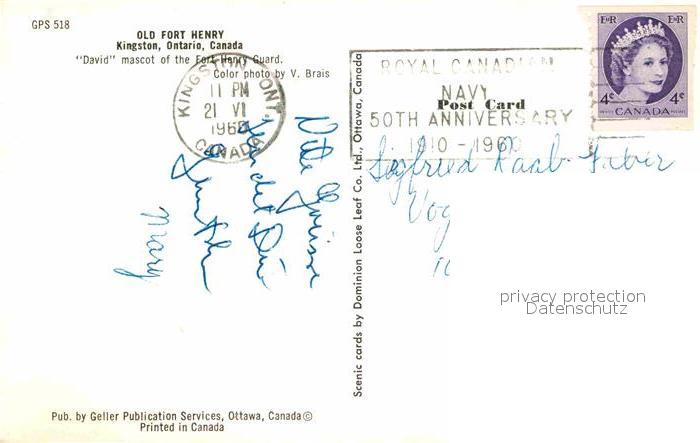 GPS 518
OLD FORT HENRY
Kingston, Ontario, Canada
"David" mascot of the Fort Henry Guard.
Color photo by V. Brais
KINGSTON ONT.
11 PM
21 VI
1960
CANADA
ROYAL CANADIAN
NAVY
50TH ANNIVERSARY
1910 - 1960
Post Card
E II R E II R
4¢ 4¢
CANADA
Siegfried Raab-Faber
Mary
Scenic cards by Dominion Loose Leaf Co. Ltd., Ottawa, Canada
privacy protection
Datenschutz
Pub. by Geller Publication Services, Ottawa, Canada ©
Printed in Canada